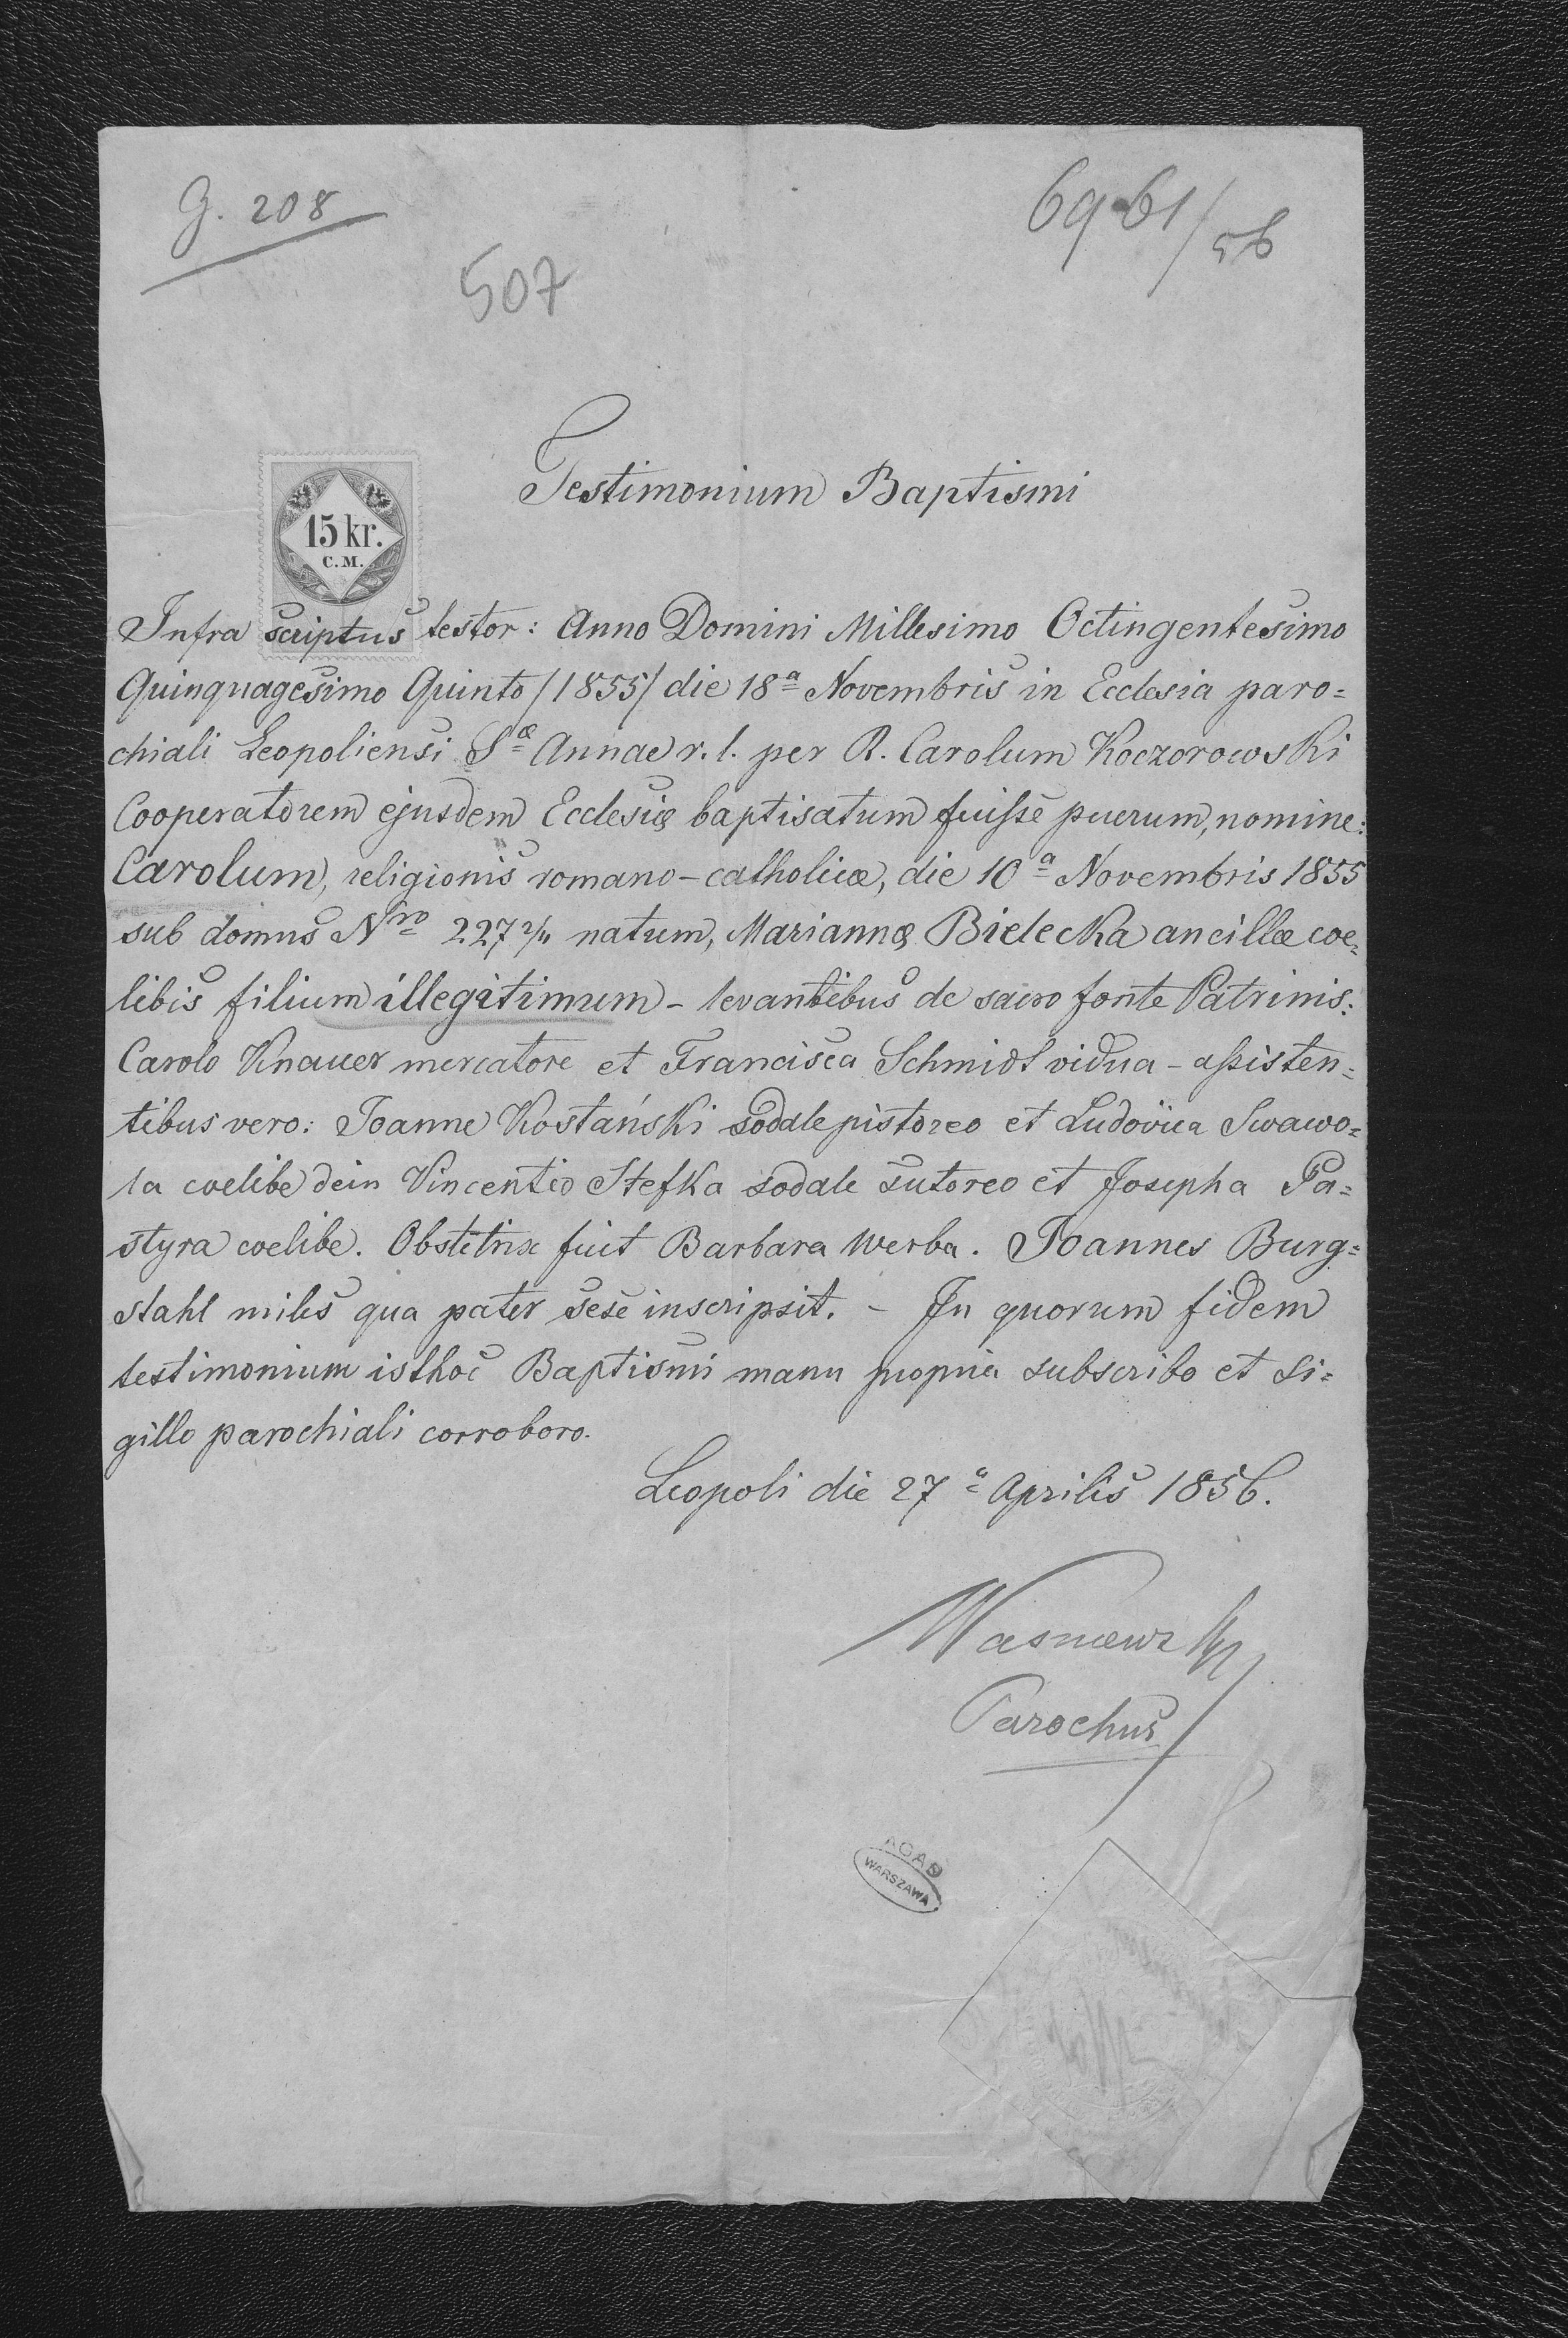 G. 208
6961/56
507
Testimonium Baptismi
15 kr.
C.M.
Infra scriptus testor: Anno Domini Millesimo Octingentesimo
Quinquagesimo Quinto /1855/ die 18ª Novembris in Ecclesia paro=
chiali Leopoliensi Sæ Annae r. l. per R. Carolum Koczorowski
Cooperatorem ejusdem Ecclesiæ baptisatum fuisse puerum, nomine:
Carolum, religionis romano-catholicæ, die 10ª Novembris 1855
sub domus Nro 227 2/4 natum, Mariannæ Bielecka ancillæ coe=
libis filium illegitimum - levantibus de sacro fonte Patrinis:
Carolo Knauer mercatore et Francisca Schmidt vidua - assisten=
tibus vero: Joanne Kostański sodale pistoreo et Ludovica Swawo=
la coelibe dein Vincentio Stefka sodale sutoreo et Josepha Pa=
styra coelibe. Obstetrix fuit Barbara Werba. Joannes Burg=
stahl miles qua pater sese inscripsit. - In quorum fidem
testimonium isthoc Baptismi manu propria subscribo et Si=
gillo parochiali corroboro.
Leopoli die 27ª Aprilis 1856.
Parochus
AGAD
WARSZAWA